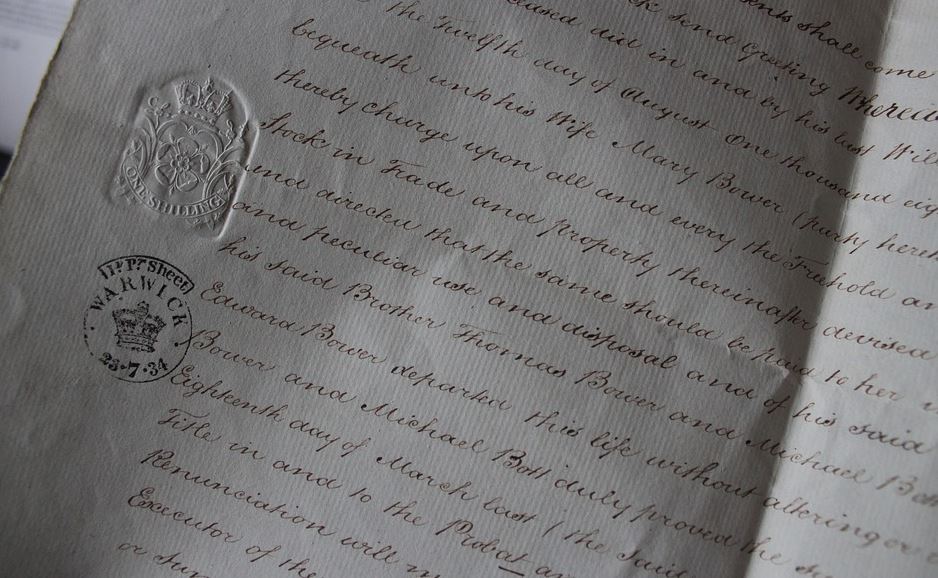 shall come
send Greeting Whereas
did in and by his last Will
the Twelfth day of August One thousand eig
bequeath unto his Wife Mary Bower (party hereto
thereby charge upon all and every the Freehold an
Stock in Trade and property thereinafter devised
and directed that the same should be paid to her
and peculiar use and disposal and of his said
his said Brother Thomas Bower and Michael Bott
Edward Bower departed this life without altering or
Bower and Michael Bott duly proved the
Eighteenth day of March last (the said
Title in and to the Probat
Renunciation will
Executor of the
or
ONE SHILLING
Sheet
WARWICK
23·7·34